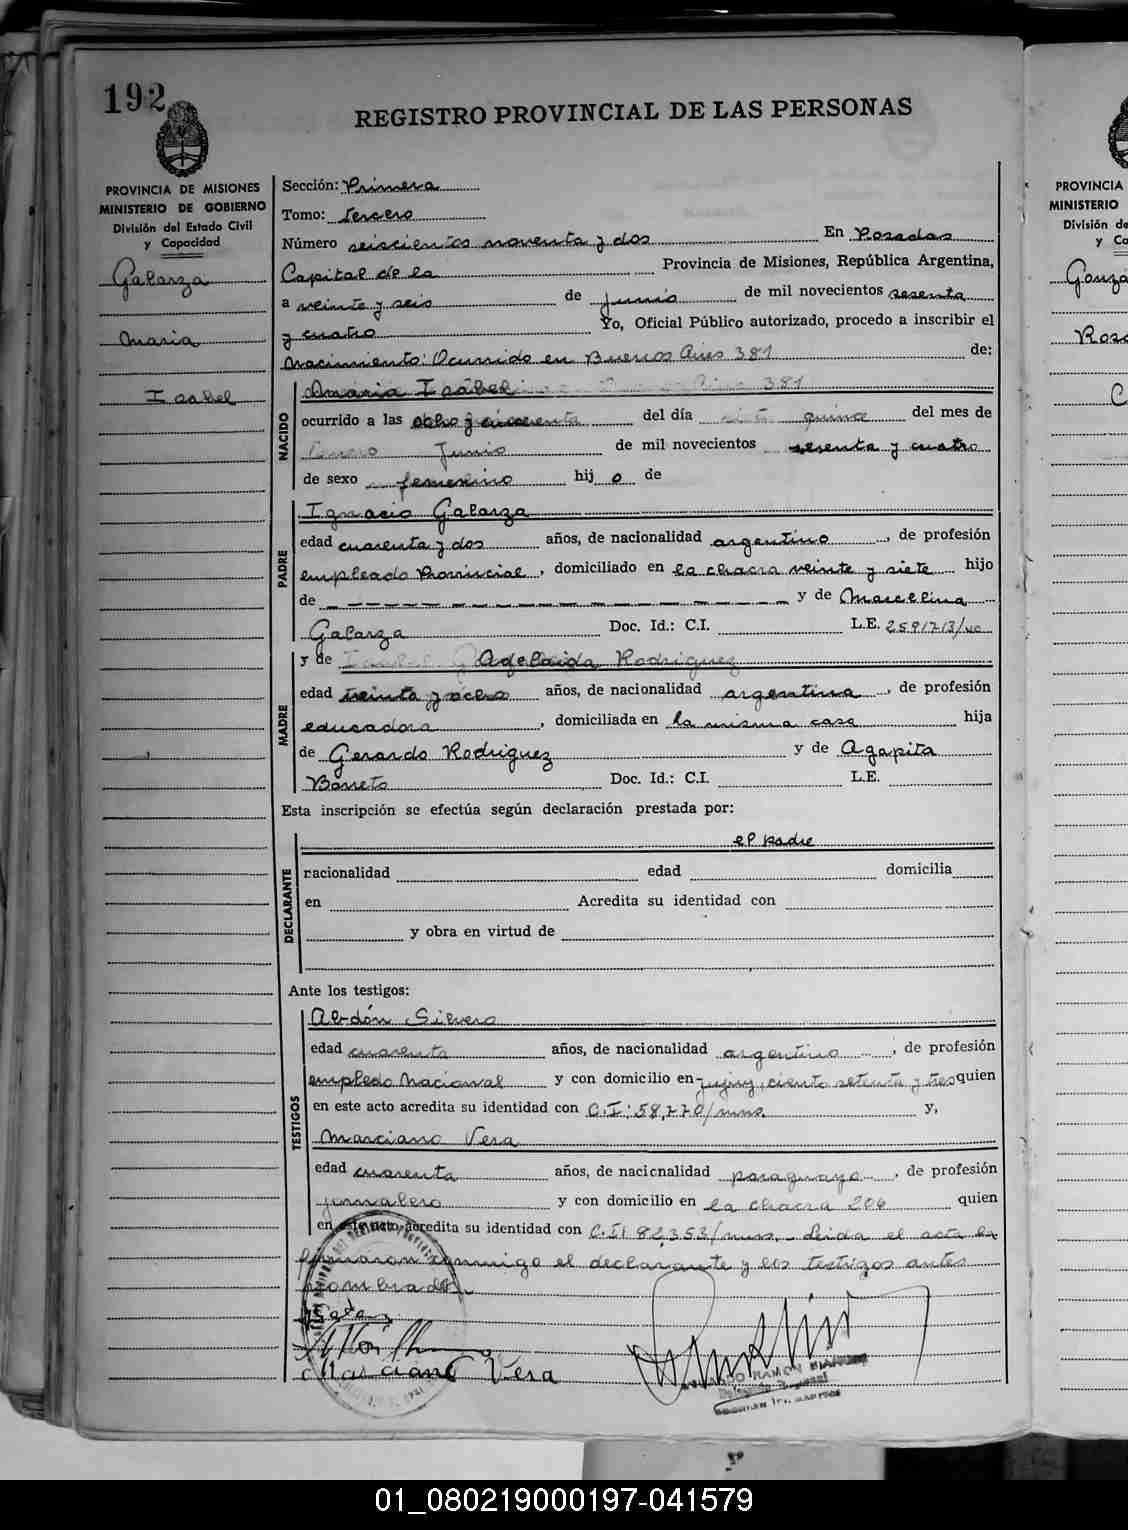 192
REGISTRO PROVINCIAL DE LAS PERSONAS
PROVINCIA DE MISIONES
MINISTERIO DE GOBIERNO
División del Estado Civil
y Capacidad
Galarza
Maria
Isabel
Sección: Primera
Tomo: Tercero
Número seiscientos noventa y dos En Posadas
Capital de la Provincia de Misiones, República Argentina,
a veinte y seis de junio de mil novecientos sesenta
y cuatro Yo, Oficial Público autorizado, procedo a inscribir el
Nacimiento: Ocurrido en Buenos Aires 381 de:
NACIDO
Maria Isabel 381
ocurrido a las ocho y cincuenta del día quince del mes de
Junio de mil novecientos sesenta y cuatro
de sexo femenino hij o de
PADRE
Ignacio Galarza
edad cuarenta y dos años, de nacionalidad argentino, de profesión
empleado Provincial, domiciliado en la chacra veinte y siete hijo
de – – – – – – – – – – y de Marcelina
Galarza Doc. Id.: C.I. L.E.
MADRE
y de Adelaida Rodriguez
edad treinta y años, de nacionalidad argentina, de profesión
educadora, domiciliada en la misma casa hija
de Gerardo Rodriguez y de Agapita
Barreto Doc. Id.: C.I. L.E.
Esta inscripción se efectúa según declaración prestada por:
DECLARANTE
el padre
nacionalidad edad domicilia
en Acredita su identidad con
y obra en virtud de
Ante los testigos:
TESTIGOS
Abdón Silvero
edad cuarenta años, de nacionalidad argentino, de profesión
empledo Nacional y con domicilio en jujuy, ciento setenta y tres quien
en este acto acredita su identidad con C.I: 58,770/mns. y,
Marciano Vera
edad cuarenta años, de nacionalidad paraguayo, de profesión
jornalero y con domicilio en la chacra 206 quien
en este acto acredita su identidad con C.I: 82,353/mns. Leida el acta la
firmaron conmigo el declarante y los testigos antes
nombrados.
Marciano Vera
RAMON
PROVINCIA
MINISTERIO
División de
y Ca
01_080219000197-041579